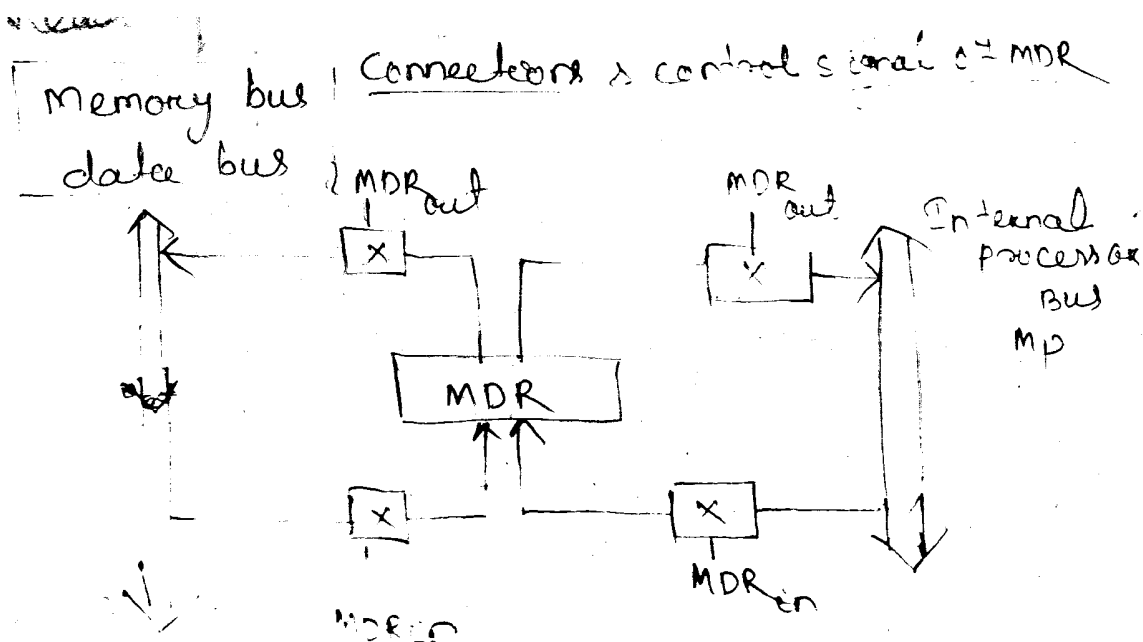 Memory bus
data bus
Connections & control signal of MDR
MDR out
MDR out
Internal
processor
Bus
MP
X
X
MDR
X
X
MDR in
MDR in